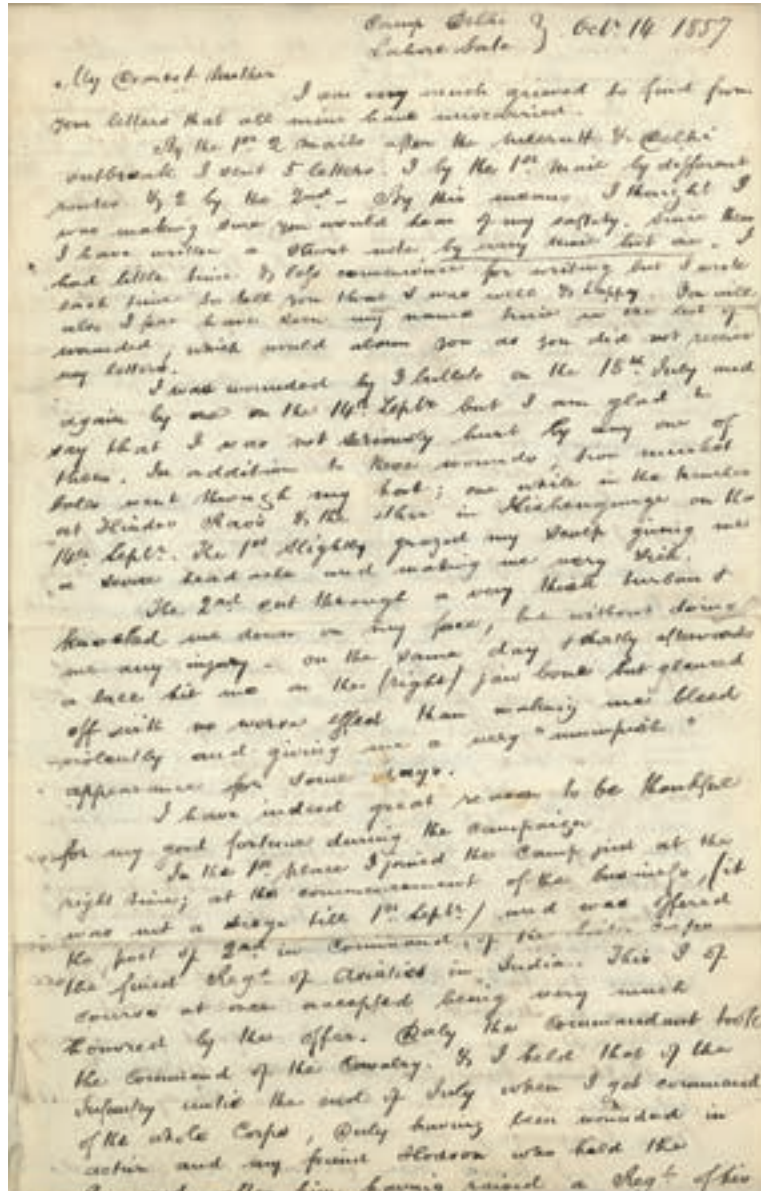 Camp Delhi } Octr 14 1857
Lahore Gate }
My Dearest Mother
I am very much grieved to find from
your letters that all mine have miscarried.
By the 1st 2 mails after the Meerutt & Delhi
outbreak I sent 5 letters. 3 by the 1st Mail by different
routes & 2 by the 2nd - By this means I thought I
was making sure you would hear of my safety. Since then
I have written a short note by every mail but one. I
had little time & less convenience for writing but I wrote
each time to tell you that I was well & happy. You will
also I fear have seen my name twice in the list of
wounded, which would alarm you as you did not receive
my letters.
I was wounded by 3 bullets on the 18th July and
again by one on the 14th Septr but I am glad to
say that I was not seriously hurt by any one of
them. In addition to these wounds, two musket
balls went through my hat; one while in the trenches
at Hindoo Rao's & the other in Kishengunge on the
14th Septr. The 1st slightly grazed my scalp giving me
a severe headache and making me very sick.
The 2nd cut through a very thick turban &
knocked me down on my face, but without doing
me any injury - on the same day shortly afterwards
a ball hit me on the (right) jaw bone but glanced
off with no worse effect than making me bleed
violently and giving me a very "mumpish"
appearance for some days.
I have indeed great reason to be thankful
for my good fortune during the campaign
In the 1st place I joined the Camp just at the
right time; at the commencement of the business, (it
was not a siege till 1st Septr) and was offered
the post of 2nd in Command, of the Guide Corps
the finest Regt of Asiatics in India. This I of
course at once accepted being very much
honored by the offer. Daly the Commandant took
the Command of the Cavalry. & I held that of the
Infantry until the end of July when I got command
of the whole Corps, Daly having been wounded in
action and my friend Hodson who held the
him having raised a Regt of his